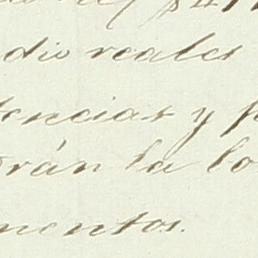 dio reales
dencias y p
drán la lo
mentos.